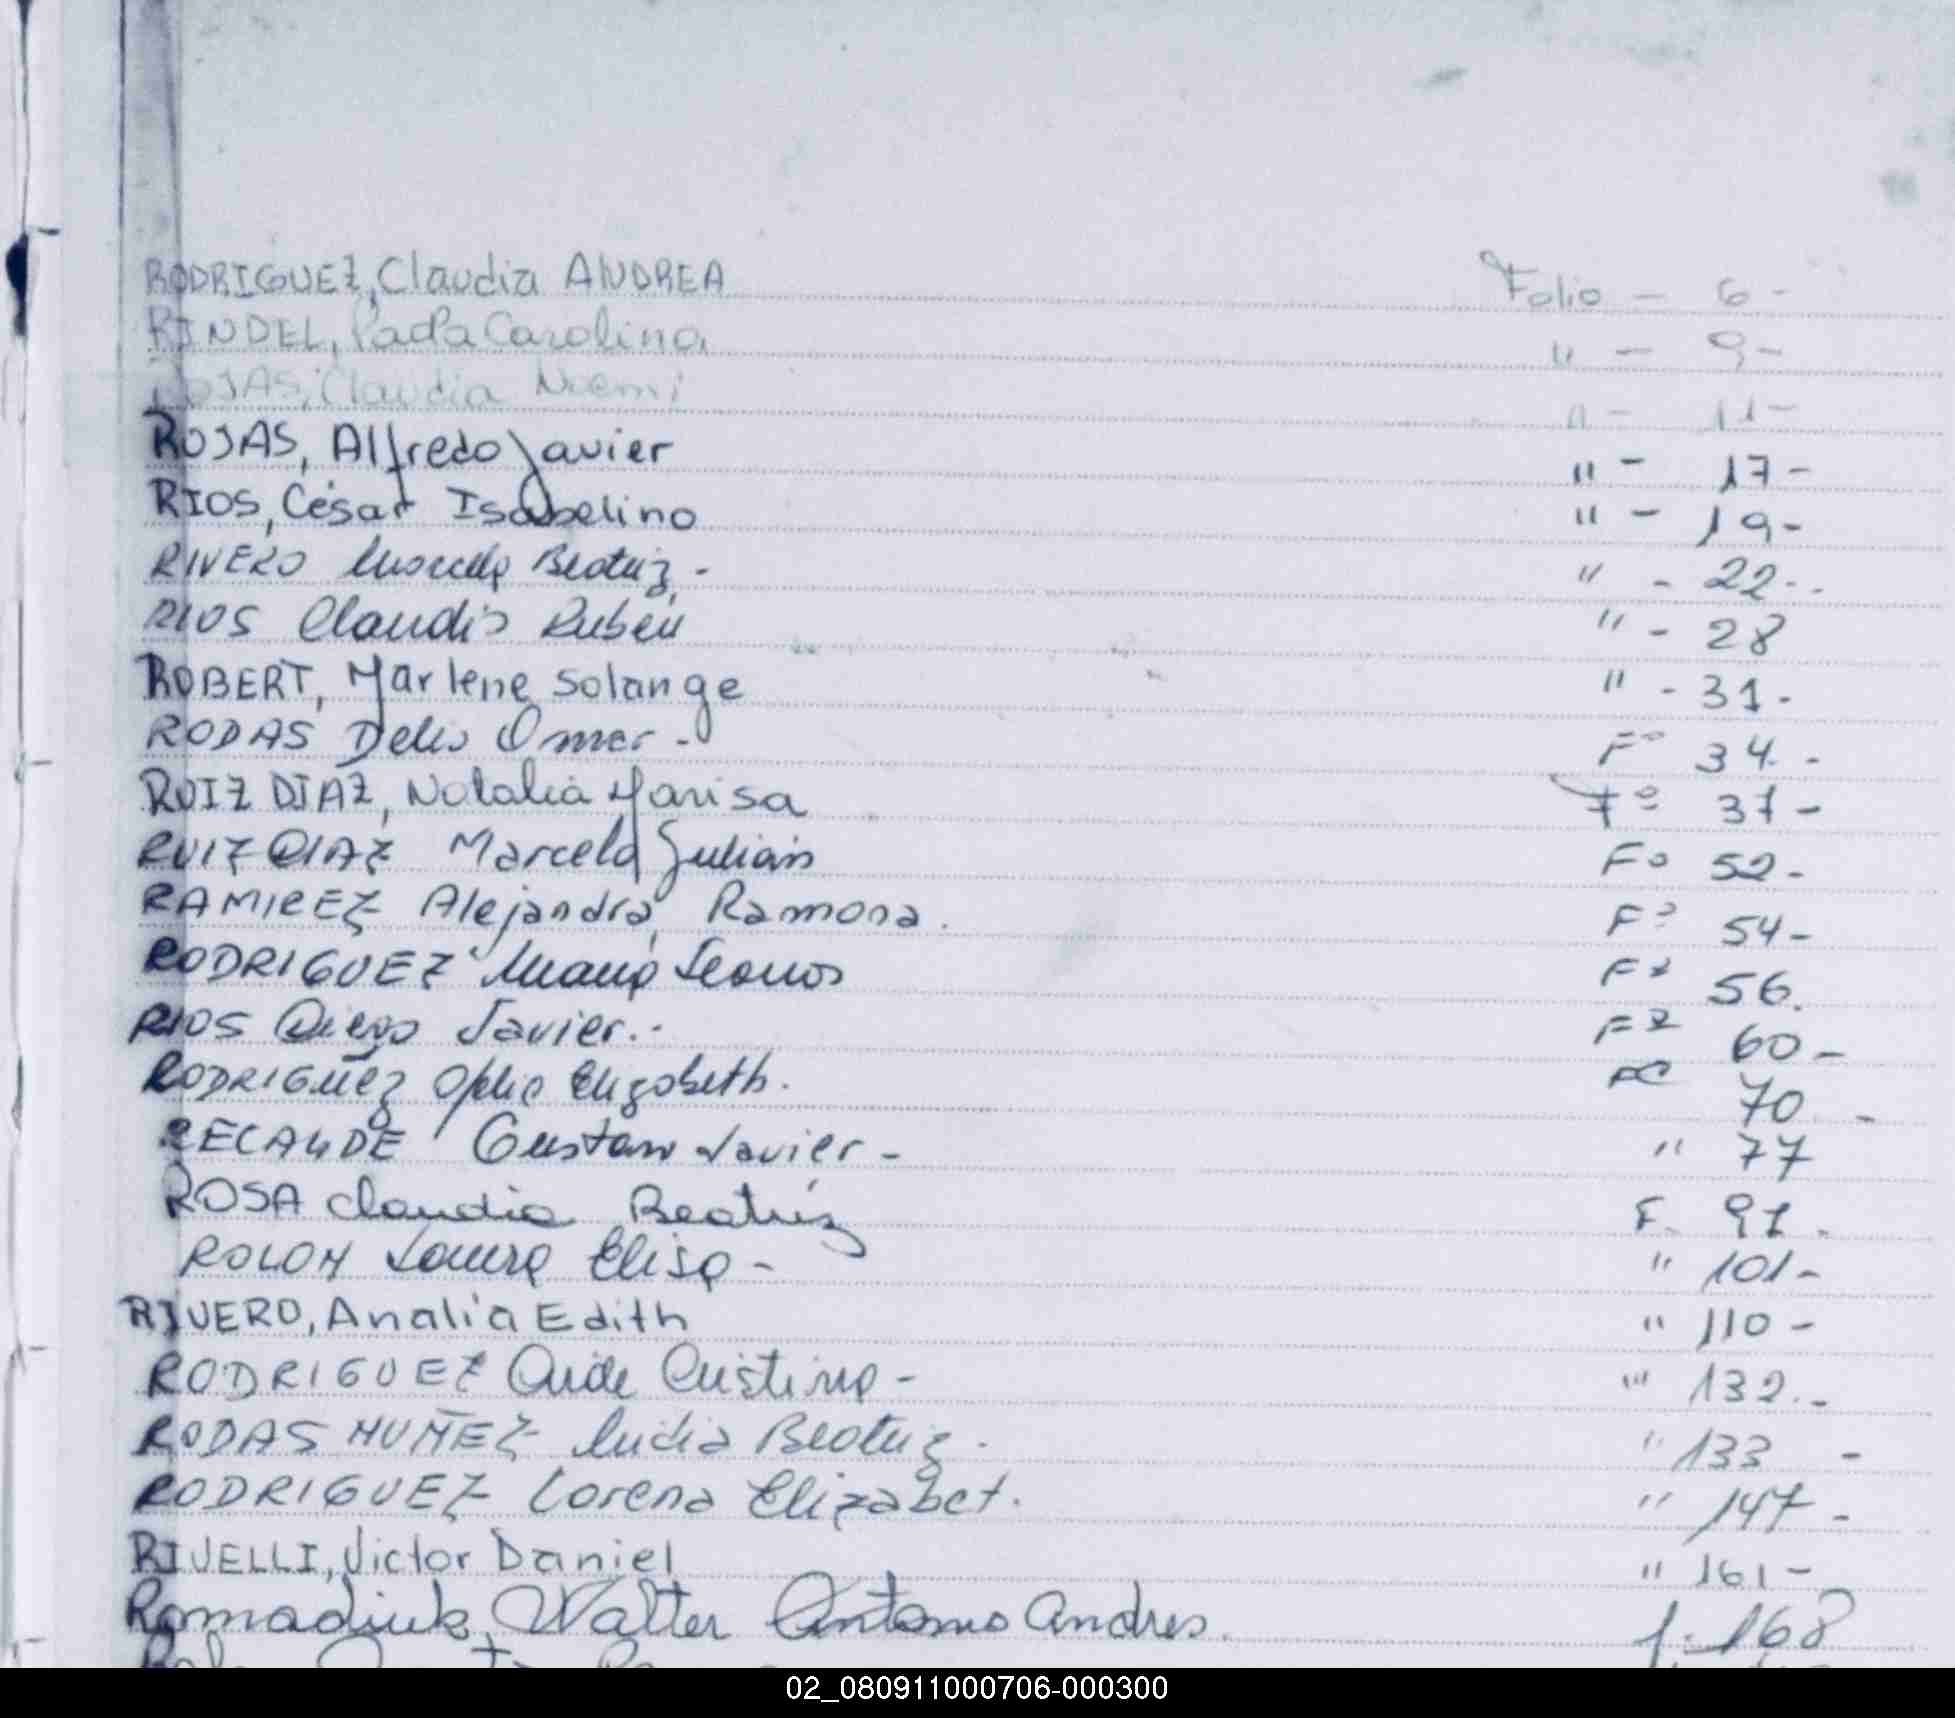 RODRIGUEZ, Claudia ANDREA Folio - 6 -
RINDEL, Paola Carolina " - 9 -
ROJAS, Claudia Noemi " - 11 -
ROJAS, Alfredo Javier " - 17 -
RIOS, César Isabelino " - 19 -
RIVERO Marcela Beatriz - " - 22 -
RIOS Claudio Rubén " - 28
ROBERT, Marlene Solange " - 31 -
RODAS Delio Omar - Fº 34 -
RUIZ DIAZ, Natalia Marisa Fº 37 -
RUIZ DIAZ Marcelo Julián Fº 52 -
RAMIREZ Alejandra Ramona. Fº 54 -
RODRIGUEZ 56.
RIOS Diego Javier. 60 -
RODRIGUEZ Elizabeth. 70 -
RECALDE Gustavo Javier - " 77
ROSA Claudia Beatriz F. 91 -
ROLON Laura Elisa - " 101 -
RIVERO, Analía Edith " 110 -
RODRIGUEZ Aide Cristina - " 132 -
RODAS NUÑEZ Lidia Beatriz. " 133 -
RODRIGUEZ Lorena Elizabet. " 147 -
RIVELLI, Victor Daniel " 161 -
Romadiuk, Walter Antonio Andres. f. 168
02_080911000706-000300